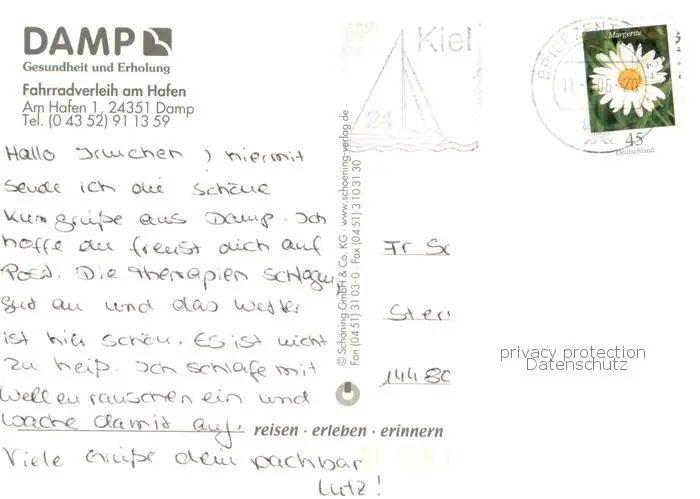 DAMP
Gesundheit und Erholung
Fahrradverleih am Hafen
Am Hafen 1, 24351 Damp
Tel. (0 43 52) 91 13 59
Hallo Irmchen, hiermit
sende ich die schöne
Kurgrüße aus Damp. Ich
hoffe du freust dich auf
Post. Die Therapien schlagen
gut an und das Wetter
ist hier schön. Es ist nicht
zu heiß. Ich schlafe mit
Wellenrauschen ein und
wache damit auf.
Viele Grüße dein Nachbar
Lutz!
reisen · erleben · erinnern
© Schöning GmbH & Co. KG · www.schoening-verlag.de
Fon (0451) 31 03-0 · Fax (0451) 3 10 31 30
Kiel
24
BRIEFZENT
Margerite
45
Deutschland
Fr
Ster
14480
privacy protection
Datenschutz